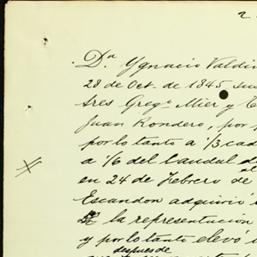 2
Dn Ygnacio Valdi
28 de Oct. de 1845
tres Gregº Mier y
Juan Rondero, por
por lo tanto a 1/3 cad
a 1/6 del caudal
en 24 de Febrero de
Escandon adquirió
la representación
y por lo tanto elevó
despues de